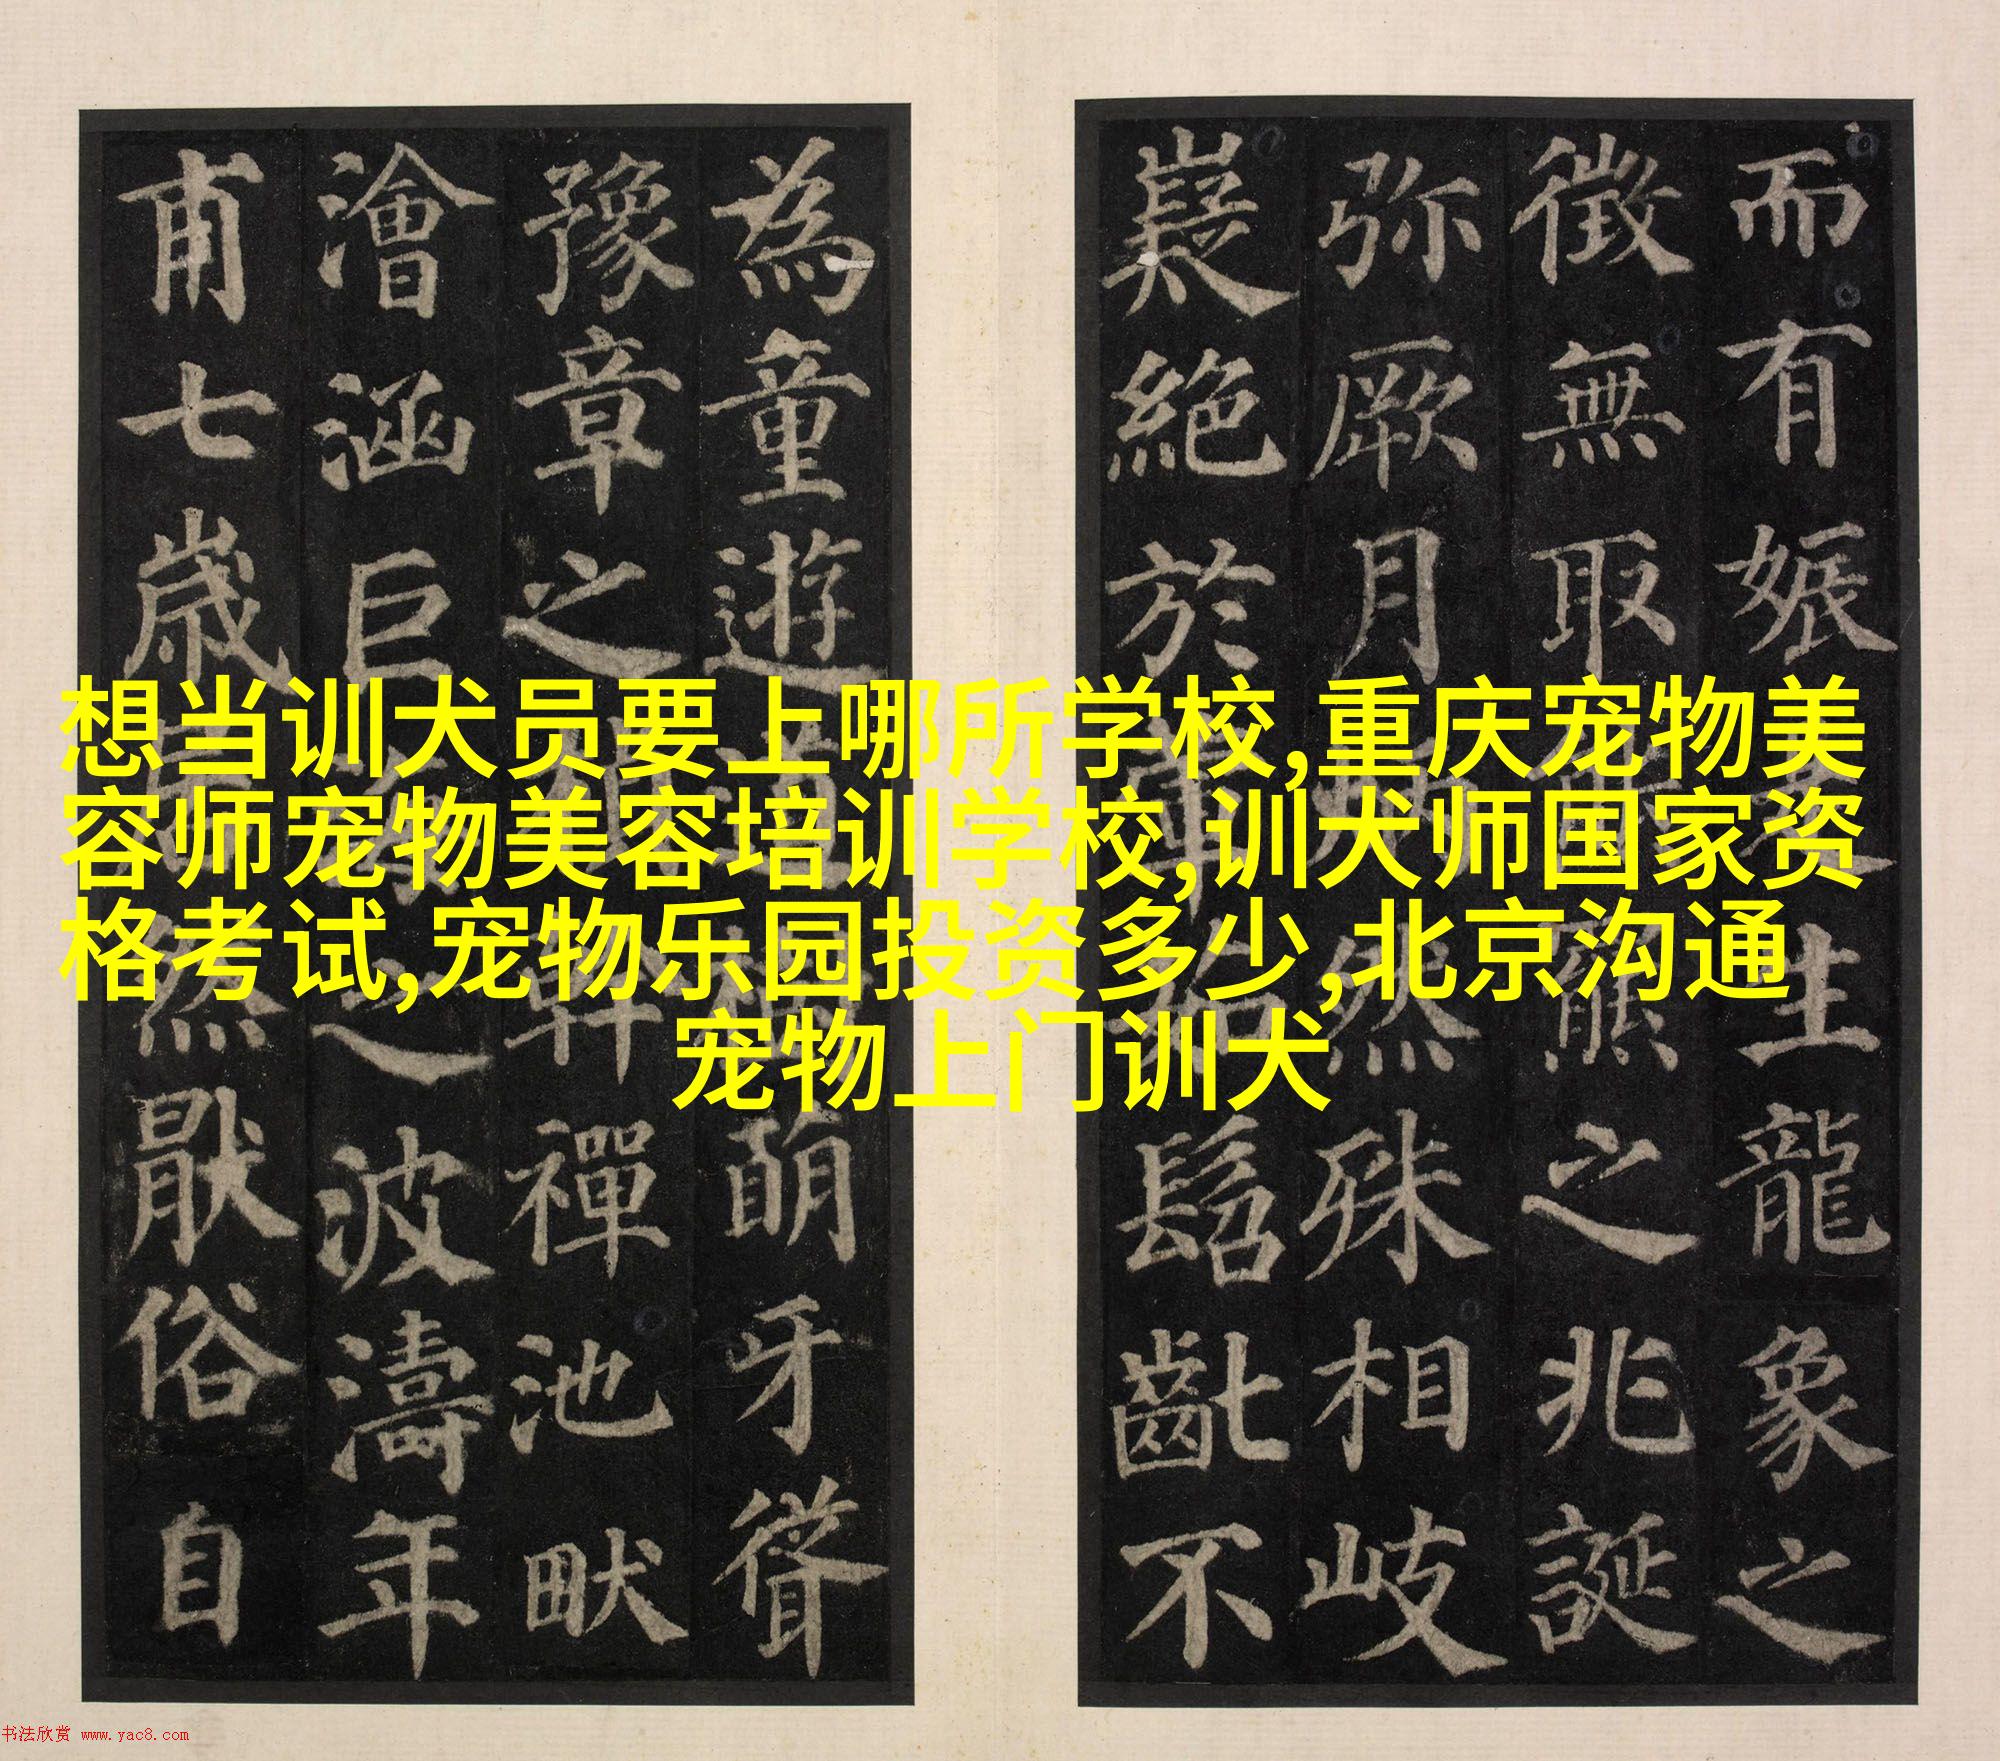 想当训犬员要上哪所学校,重庆宠物美
容师宠物美容培训学校,训犬师国家资
格考试,宠物乐园投资多少,北京沟通
宠物上门训犬
而有娠生龍象之
徵無取熊之兆誕
弥厥月然殊相岐
嶷絕於髫齔不
為童遊萌牙聳
豫章之幹禪池畎
澮涵巨之波濤年
甫七歲然厭俗自
书法欣赏 www.yac8.com